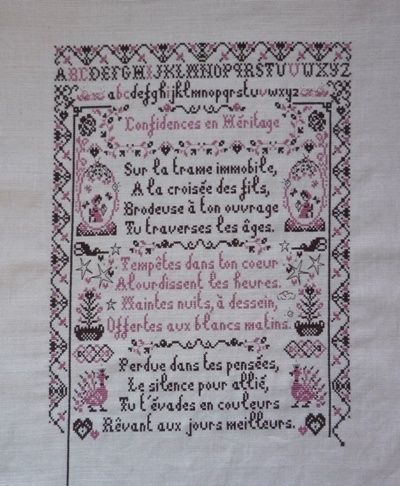 ABCDEFGHIJKLMNOPQRSTUVWXYZ
abcdefghijklmnopqrstuvwxyz
Confidences en Héritage
Sur la trame immobile,
A la croisée des fils,
Brodeuse à ton ouvrage
Tu traverses les âges.
Tempêtes dans ton coeur
Alourdissent les heures.
Maintes nuits, à dessein,
Offertes aux blancs matins.
Perdue dans tes pensées,
Le silence pour allié,
Tu t'évades en couleurs
Rêvant aux jours meilleurs.